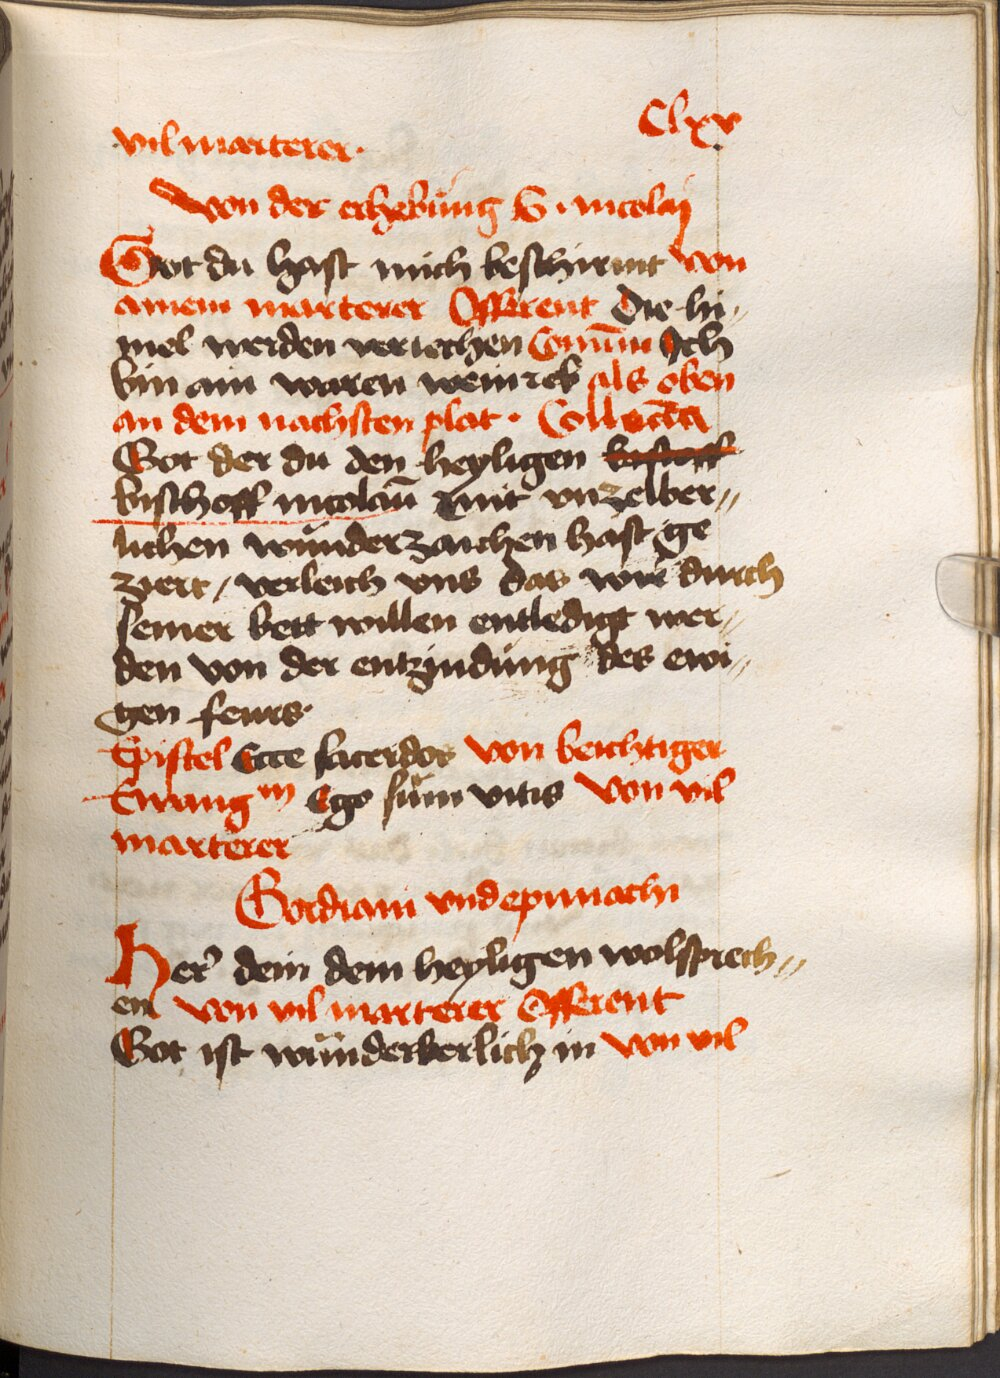 Clxv
vil marterer.
Von der erhebung S. nicolaj
Got du hast mich beschirmt von
ainem marterer Offerent Die hi„
mel werden veriechen Comūm Ich
bin ain waren weinreb als oben
an dem nachsten plat. Collecta
Got der du den heyligen
bischoff nicolaū mit vnzelber„
lichen wunderzaichen hast ge
ziert / verleich vns das wir durch
seiner bett willen entledigt wer„
den von der entzindung des ewi„
gen feurs.
Epistel Ecce sacerdos von beichtiger
Ewangm Ego sum vitis Von vil
marterer
Gordiani vnd epimachi
Her dein dem heyligen wolsprech„
en von vil marterer Offerent
Got ist wunderberlich in von vil